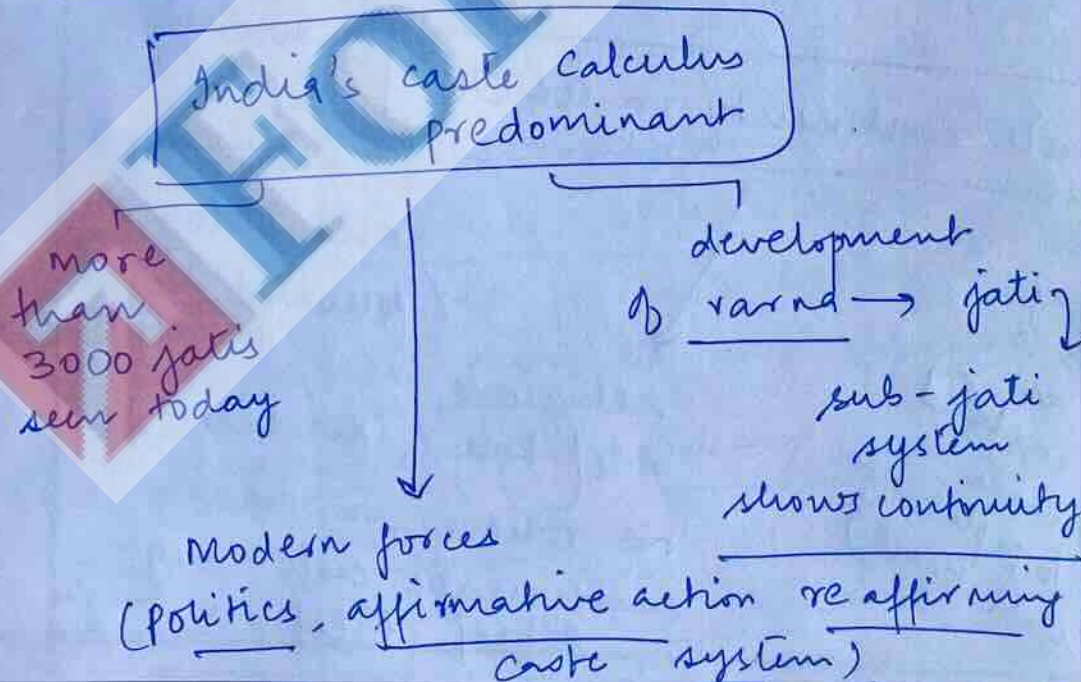 India's caste calculus
predominant
more
than
3000 jatis
seen today
development
of varna → jati
sub-jati
system
shows continuity
Modern forces
(politics, affirmative action reaffirming
caste system)